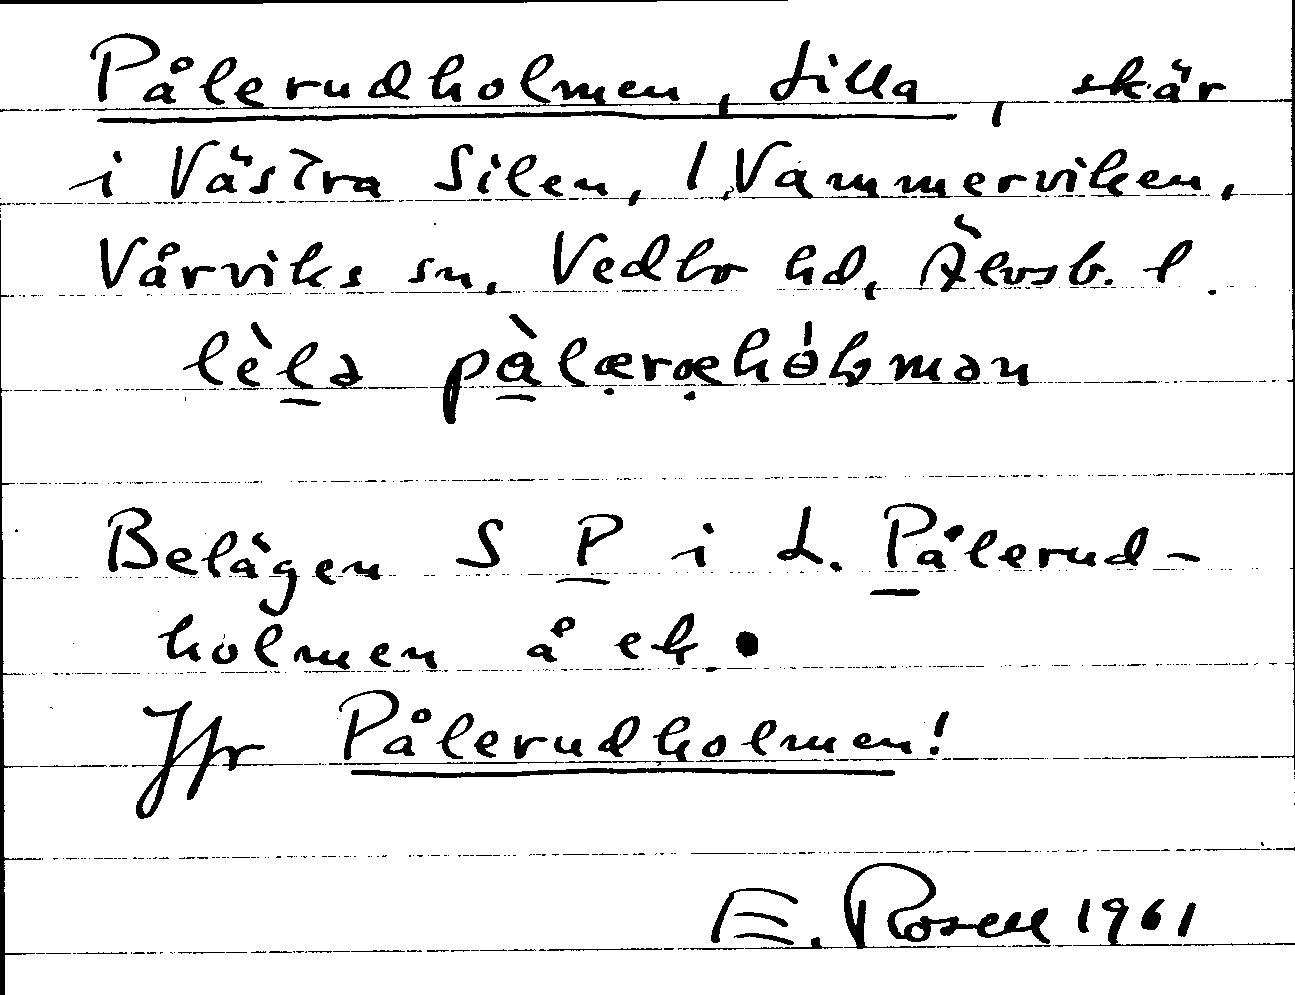 Pålerudholmen, Lilla, skär
i Västra Silen, / Vammerviken,
Vårviks sn, Vedbo hd, Älvsb. l.
lèla pålæræhólman
Belägen S P i L. Pålerud-
holmen å ek.
Jfr Pålerudholmen!
E. Rosell 1961